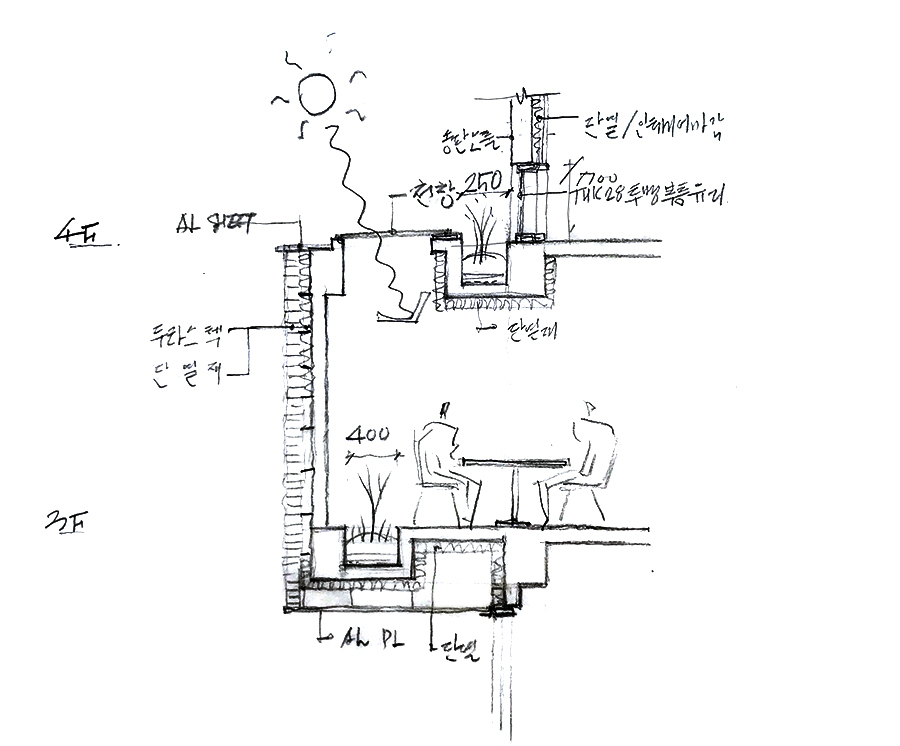 단열/인테리어마감
송판노출
천창
250
1700
THK28 투명복층유리
4F
AL SHEET
단열재
두라스텍
단열재
400
3F
AL PL
단열